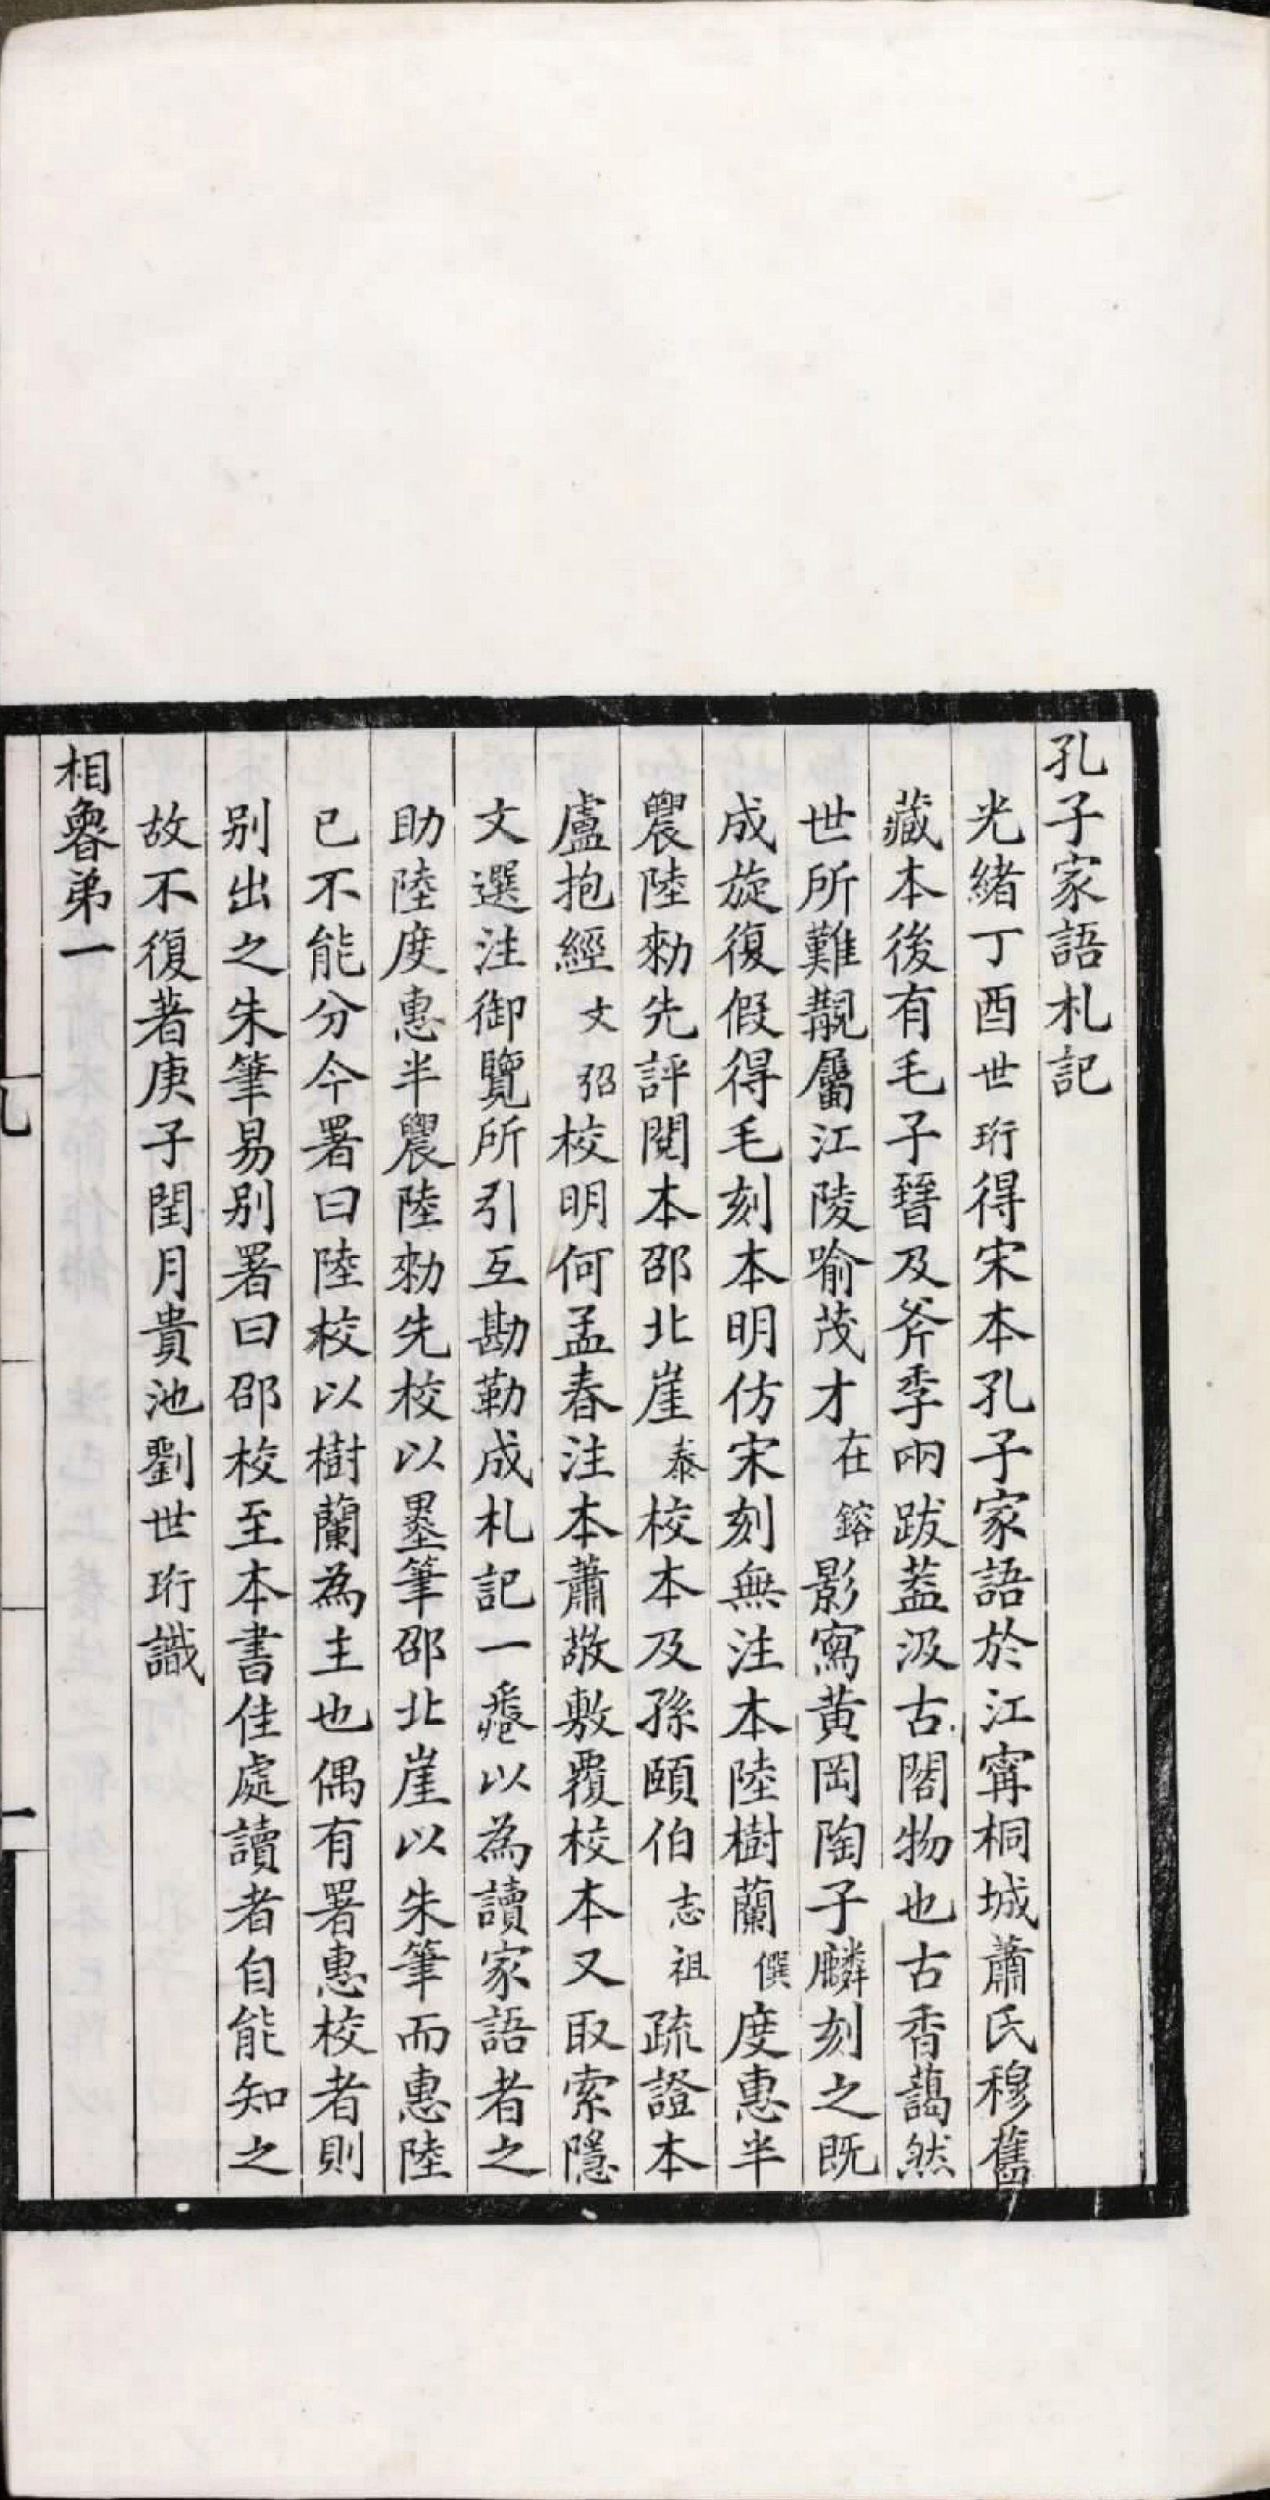 孔子家語札記
光緒丁酉世珩得宋本孔子家語於江甯桐城蕭氏穆舊
藏本後有毛子晉及斧季兩跋葢汲古閣物也古香藹然
世所難覯屬江陵喻茂才在鎔影寫黃岡陶子麟刻之既
成旋復假得毛刻本明仿宋刻無注本陸樹蘭僎度惠半
農陸勑先評閱本邵北崖泰校本及孫頤伯志祖疏證本
盧抱經文弨校明何孟春注本蕭敬敷覆校本又取索隱
文選注御覽所引互勘勒成札記一卷以為讀家語者之
助陸度惠半農陸勑先校以墨筆邵北崖以朱筆而惠陸
已不能分今署曰陸校以樹蘭為主也偶有署惠校者則
別出之朱筆易別署曰邵校至本書佳處讀者自能知之
故不復著庚子閏月貴池劉世珩識
相魯弟一
一